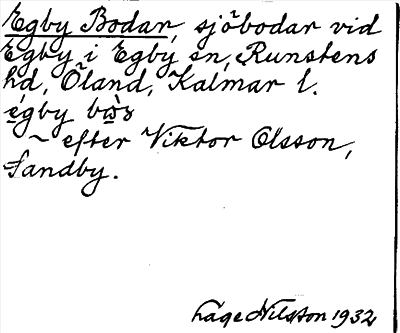 Egby Bodar, sjöbodar vid
Egby i Egby sn, Runstens
hd, Öland, Kalmar l.
égby bo̱ɷ̀s
~ efter Viktor Olsson,
Sandby.
Lage Nilsson 1932